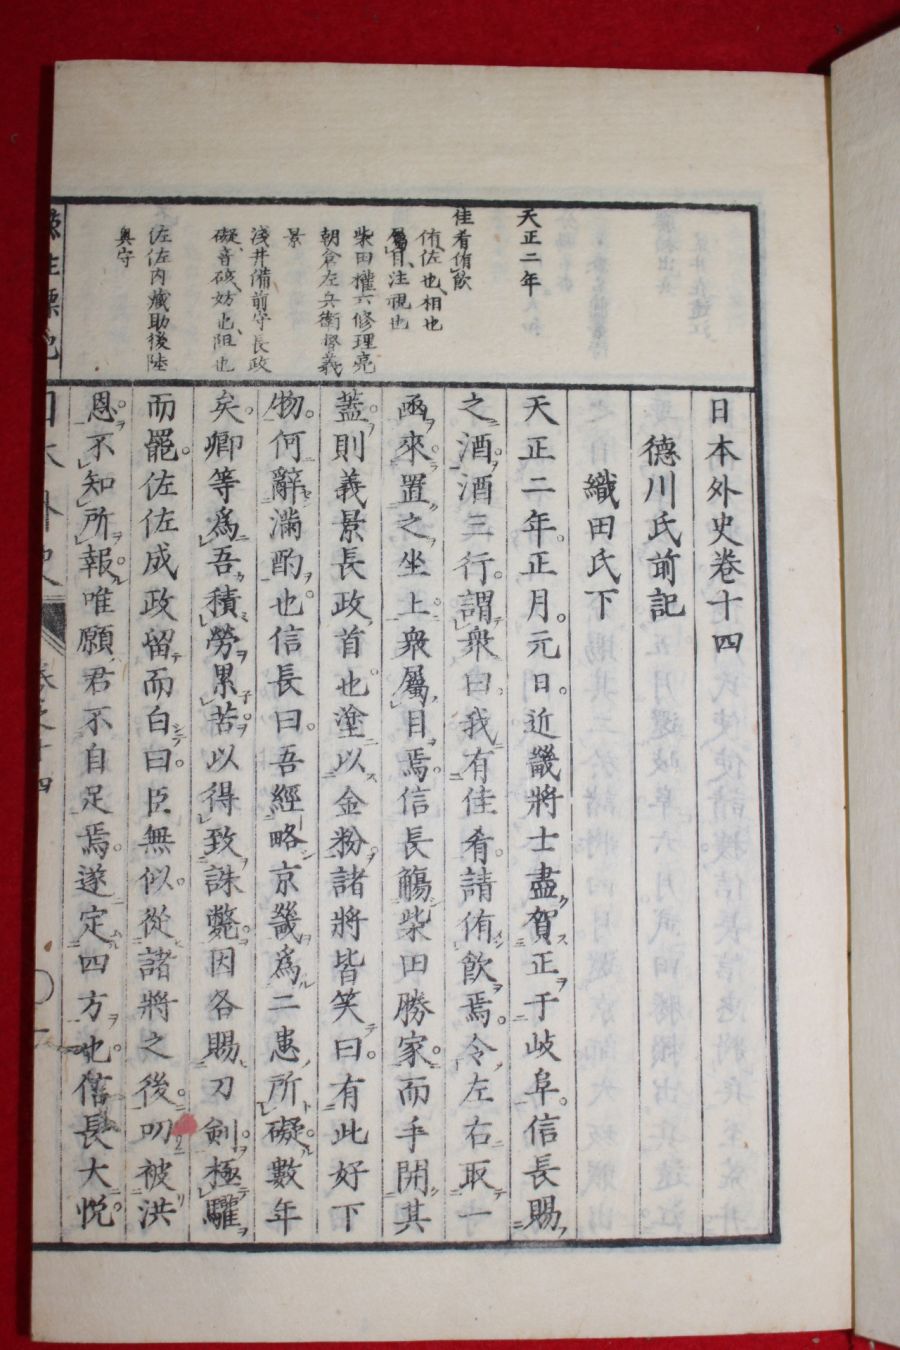 天正二年
佳肴侑飲
侑佐也、相也
屬目、注視也
柴田權六修理亮
朝倉左兵衛督義
景
淺井備前守長政
礙、音硋、妨也、阻也
佐佐内藏助後陸
奥守
日本外史卷十四
德川氏前記
織田氏下
天正二年。正月。元日。近畿將士盡賀正于岐阜。信長賜
之酒。酒三行。謂衆曰。我有佳肴。請侑飲焉。令左右取一
凾來。置之坐上。衆屬目焉。信長觴柴田勝家。而手開其
蓋。則義景長政首也。塗以金粉。諸將皆笑曰。有此好下
物。何辭滿酌也。信長曰。吾經略京畿。爲二患所礙。數年
矣。卿等爲吾積勞累苦。以得致誅斃。因各賜刀劍。極驩
而罷。佐佐成政留而白曰。臣無似。從諸將之後。叨被洪
恩。不知所報。唯願君不自足焉。遂定四方也。信長大悅。
日本外史
卷之十四